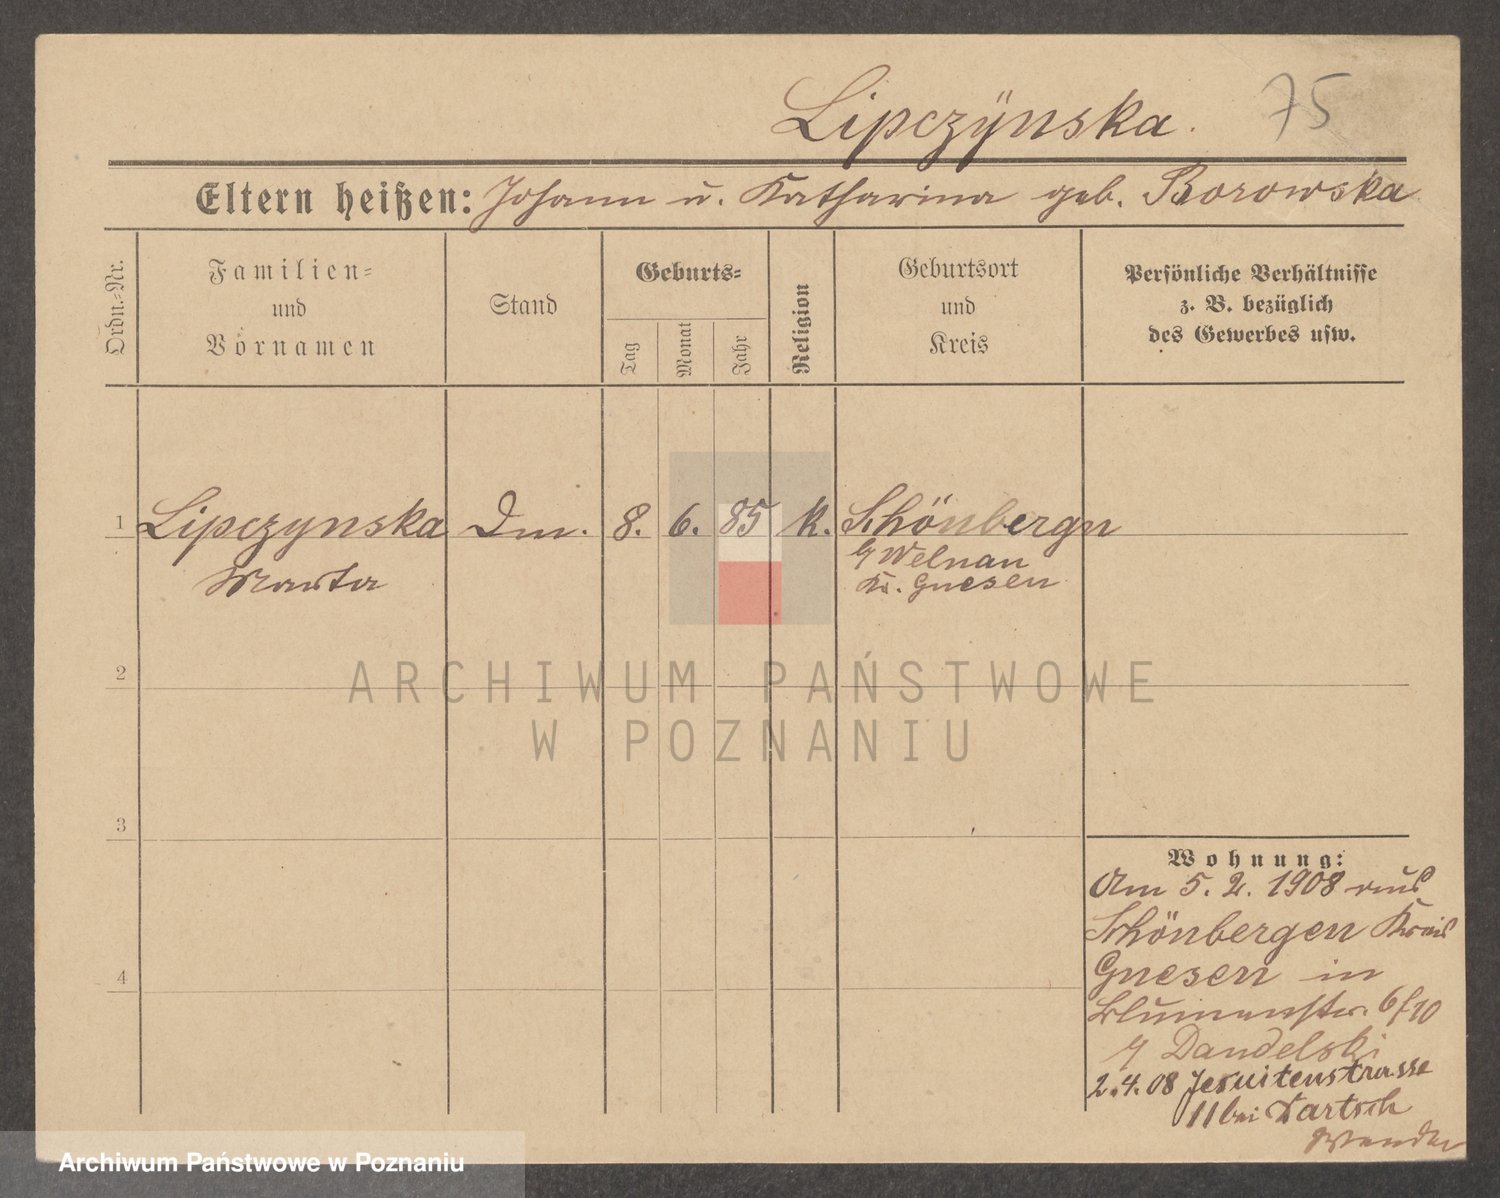 Lipczÿnska. 75
Eltern heißen: Johann u. Katharina geb. Borowska
Ordn.-Nr.
Familien-
und
Vornamen
Stand
Geburts-
Tag
Monat
Jahr
Religion
Geburtsort
und
Kreis
Persönliche Verhältnisse
z. B. bezüglich
des Gewerbes usw.
1 Lipczynska Dm. 8. 6. 85 k. Schönbergn
Marta
b/ Welnau
Kr. Gnesen
2
3
4
Wohnung:
Am 5. 2. 1908 aus
Schönbergen Kreis
Gnesen in
Blumenstr. 6/10
b/ Dandelski
2.4.08 Jesuitenstrasse
11 bei Bartsch
ARCHIWUM PAŃSTWOWE
W POZNANIU
Archiwum Państwowe w Poznaniu